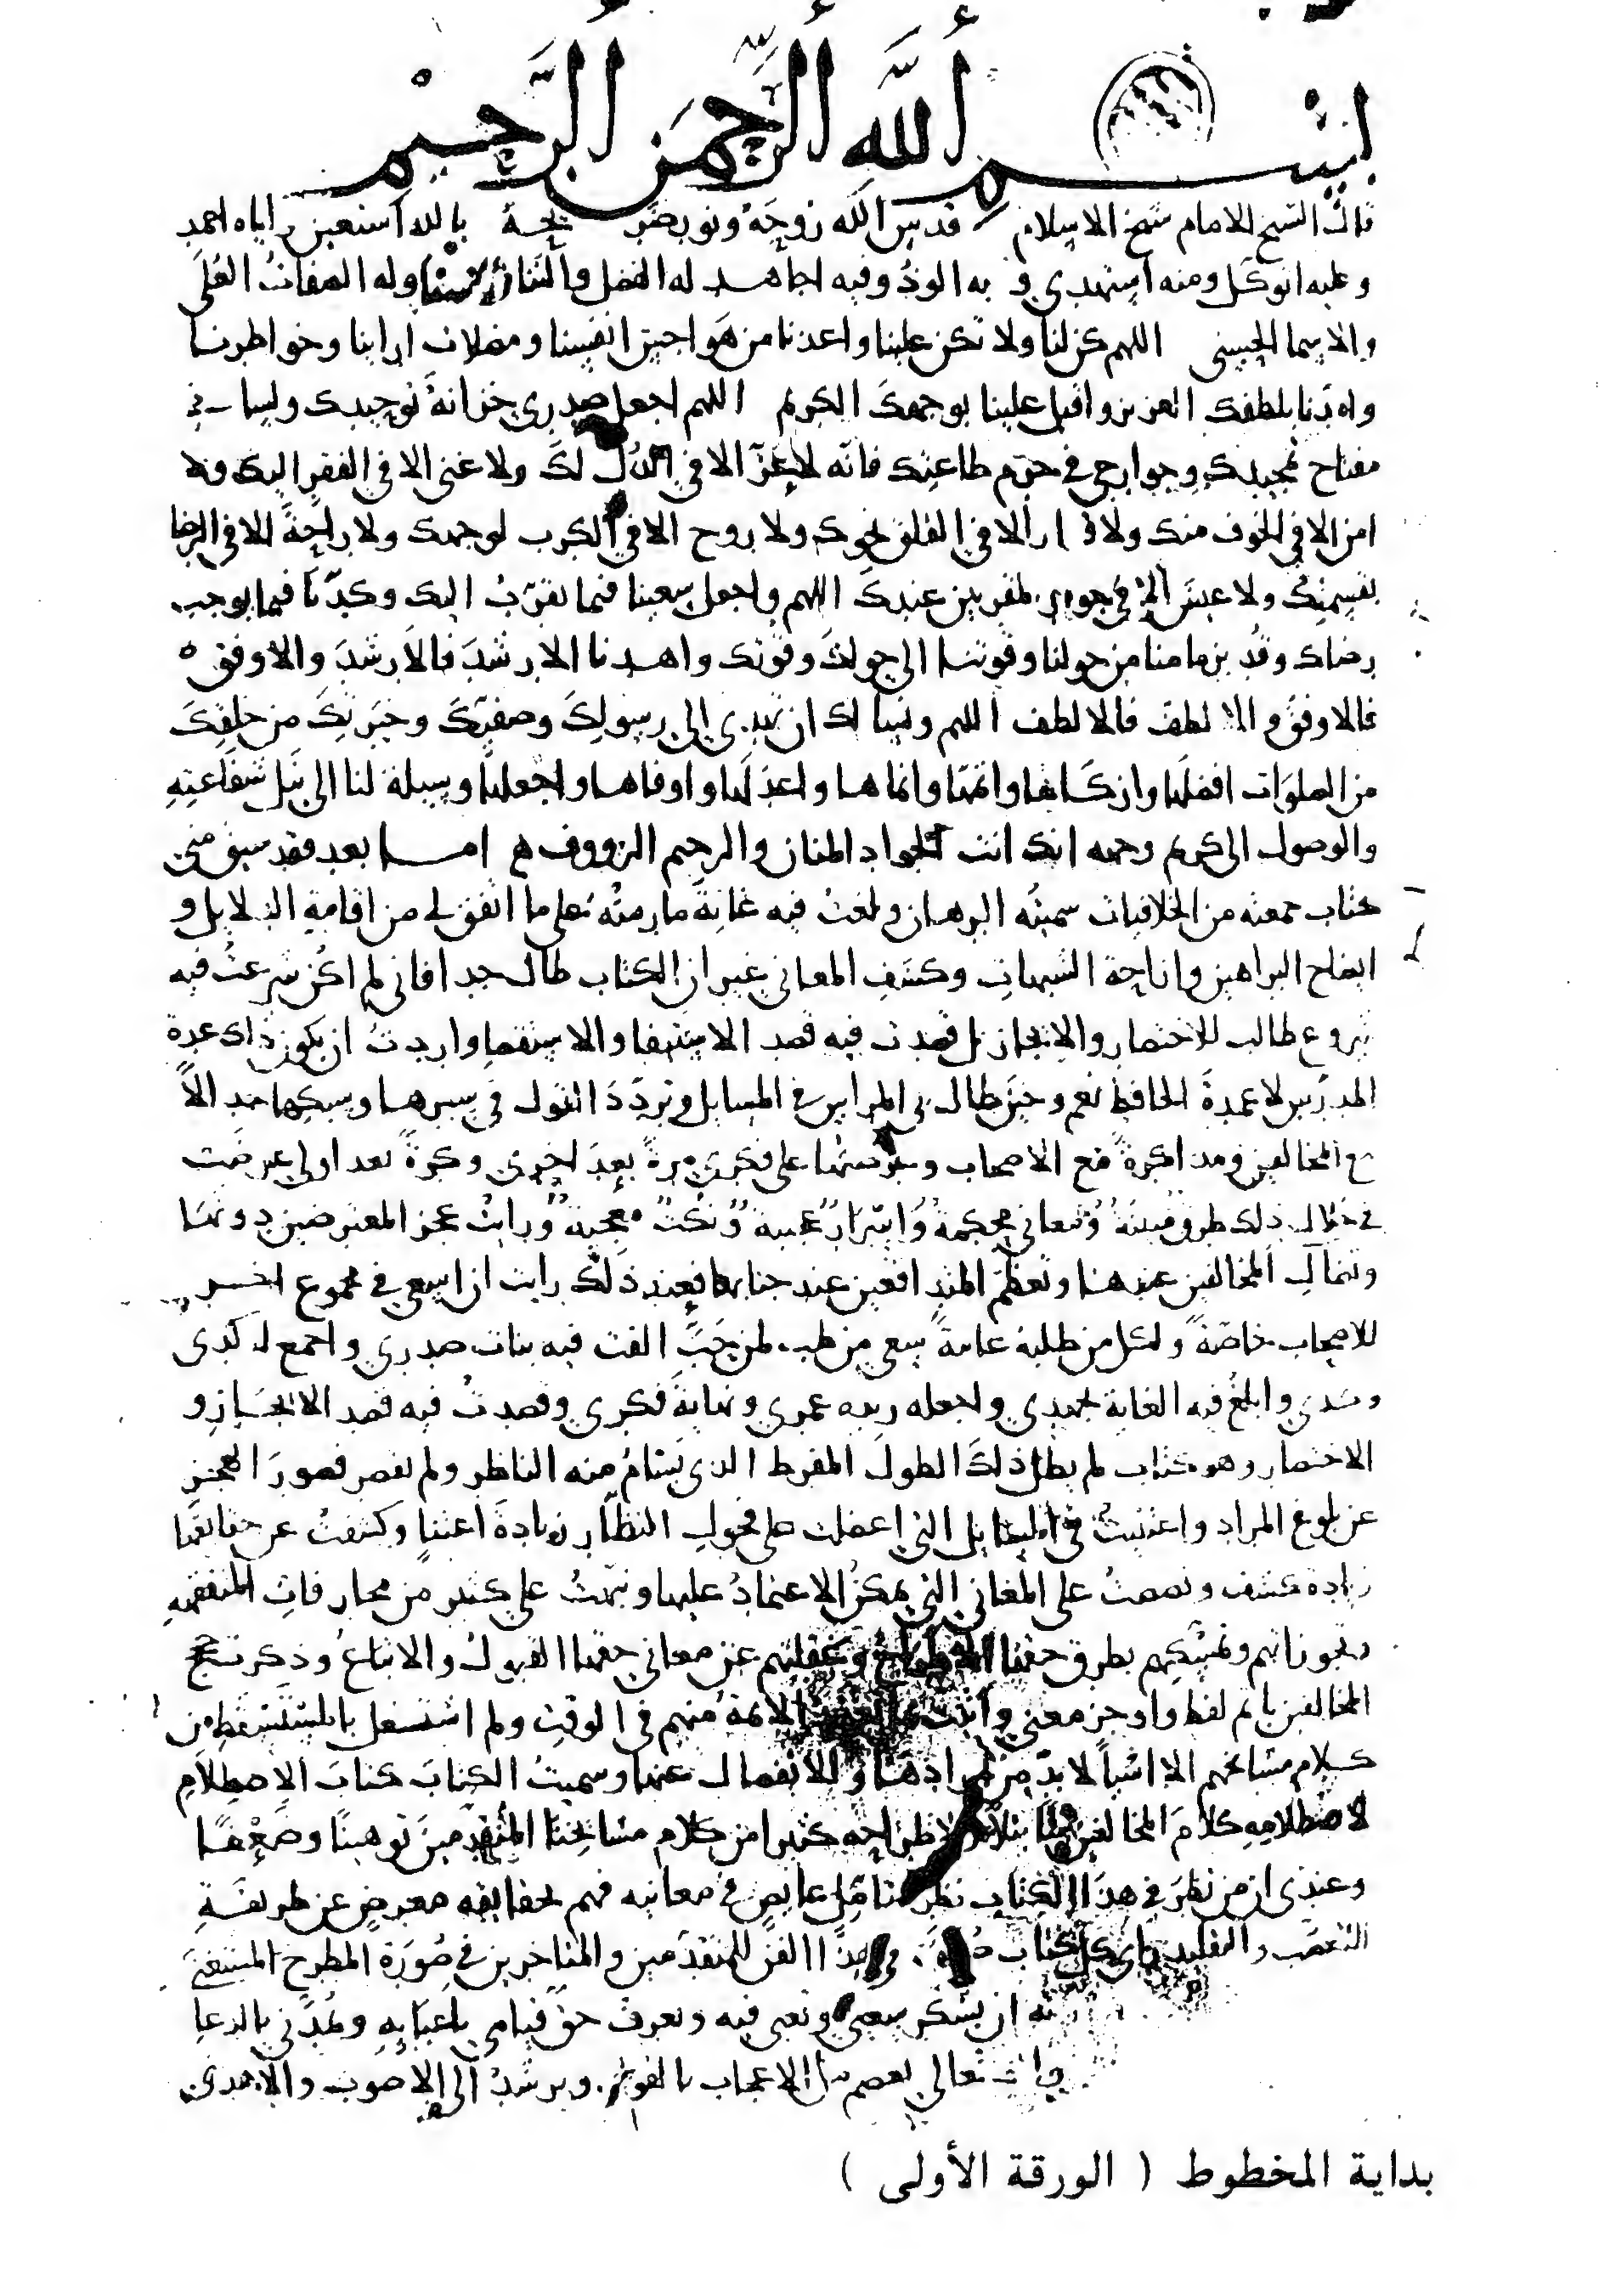 بسم الله الرحمن الرحيم
قال الشيخ الامام شيخ الاسلام قدس الله روحه ونور ضريحه بالله استعين واياه احمد
وعليه اتوكل ومنه استهدي و به الوذ وفيه اجاهد له الفضل والثنا وله الصفات العلى
والاسما الحسنى اللهم كن لنا ولا تكن علينا واعذنا من هواجس انفسنا ومضلات ارائنا وخواطرنا
وامدنا بلطفك العزيز واقبل علينا بوجهك الكريم اللهم اجعل صدري خزانة توحيدك ولساني
مفتاح تمجيدك وجوارحي في حرم طاعتك فانه لا عز الا في الذل لك ولا غنى الا في الفقر اليك ولا
امن الا في الخوف منك ولا قرار الا في القلق نحوك ولا روح الا في الكرب لوجهك ولا راحة الا في الرضا
بقسمتك ولا عيش الا في جوار المقربين عندك اللهم واجعل سعينا فيما نقرب اليك وكدنا فيما يوجب
رضاك وقد بزمامنا من حولنا وقوتنا الى حولك وقوتك واهدنا الارشد فالارشد والاوفق
فالاوفق والالطف فالالطف اللهم ونسالك ان تهدي الى رسولك وصفيك وخيرتك من خلقك
من الصلوات افضلها وازكاها واتمها وانماها واعدلها واوفاها واجعلها وسيلة لنا الى نيل شفاعته
والوصول الى كريم وجهه انك انت الجواد المنان والرحيم الرووف اما بعد فقد سبق مني
كتاب جمعته من الخلافيات سميته البرهان وبلغت فيه غاية ما رمته على ما اتفق لي من اقامة الدلايل و
ايضاح البراهين وازاحة الشبهات وكشف المعاني غير ان الكتاب طال جدا فاني لم اكن شرعت فيه
شروع طالب للاختصار والايجاز بل قصدت فيه قصد الاستيفا والاستقصا واردت ان يكون ذاك عدة
المدرس لا عمدة الحافظ نعم وحين طال بي المراس في المسايل وتردد القول في سبرها وسبكها جدالا
مع المخالفين ومذاكرة مع الاصحاب و على فكري مرة بعد اخرى وكرة بعد اولى عرضت
في خلال ذلك طرق متينة ومعاني محكمة واسرار عجيبة ونكت معجبة ورايت عجز المعترضين دونها
و المخالفين عندها و عند ذلك رايت ان اسعى في مجموع اخر
للاصحاب خاصة ولكل من طلبه عامة سعي من طب لمن حب الفت فيه بنات صدري واجمع له كدى
و وابلغ فيه الغاية بجهدي واجعله عمري ونهاية فكري وقصدت فيه قصد الايجاز و
الاختصار وهو كتاب لم يطل ذلك الطول المفرط الذي يسام منه الناظر ولم يقصر قصور العجز
عن بلوغ المراد واعتنيت في المسايل التي اعضلت على فحول النظار زيادة اعتنا وكشفت عن حقايقها
زيادة كشف ونصصت على المعاني التي يمكن الاعتماد عليها ونبهت على كثير من مجازفات المتفقهه
وتجوزاتهم وتمسكهم بطرق حقها وغفلتهم عن معاني حقها القبول والاتباع وذكرت حجج
المخالفين باتم لفظ واوجز معنى الايمة منهم في الوقت ولم اشتغل
كلام مشايخهم الا اشيا لا بد من ايرادها والانفصال عنها وسميت الكتاب كتاب الاصطلام
لاصطلامه كلام المخالفين كثيرا من كلام مشايخنا المتقدمين توهينا وضعفا
وعندي ان من نظر في هذا الكتاب نظر متامل غايص في معانيه فهم لحقايقه معرض عن طريقة
التعصب والتقليد راى كل كتاب في هذا الفن للمتقدمين والمتاخرين في صورة المطرح المستغنى
ان يشكر سعيي وتعبي فيه ويعرف حق قيامي باعبايه ويمدني بالدعا
تعالى يعصم الاعجاب ويرشد الى الاصوب والاهدى
بداية المخطوط ( الورقة الأولى )